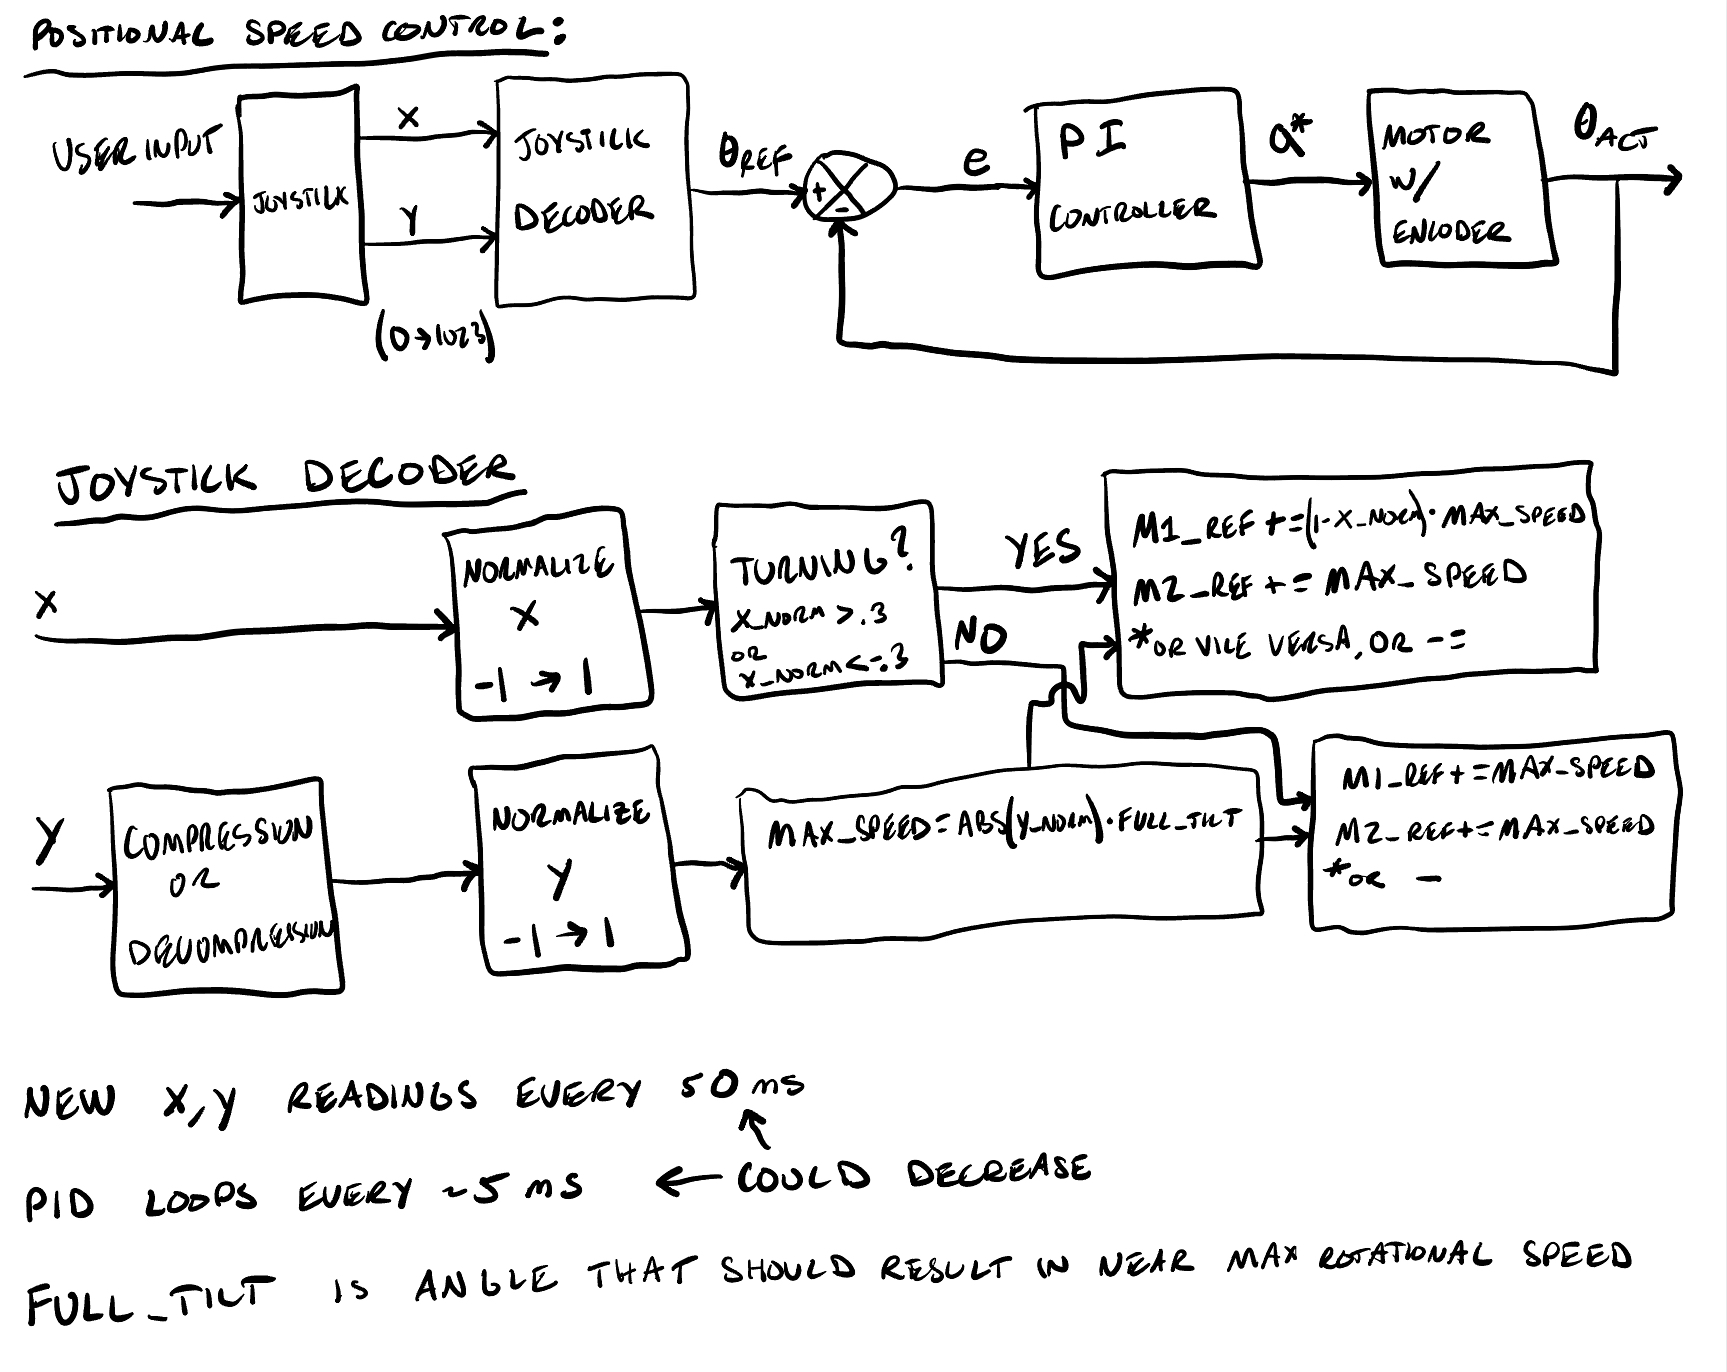 POSITIONAL SPEED CONTROL:
USER INPUT
JOYSTICK
X
Y
(0→1023)
JOYSTICK
DECODER
θREF
+
-
e
PI
CONTROLLER
a*
MOTOR
W/
ENCODER
θACT
JOYSTICK DECODER
X
NORMALIZE
X
-1 → 1
TURNING?
X_NORM > .3
OR
X_NORM < -.3
YES
NO
M1_REF += (1-X_NORM)·MAX_SPEED
M2_REF += MAX_SPEED
*OR VICE VERSA, OR -=
Y
COMPRESSION
OR
DECOMPRESSION
NORMALIZE
Y
-1 → 1
MAX_SPEED = ABS(Y_NORM)·FULL_TILT
M1_REF += MAX_SPEED
M2_REF += MAX_SPEED
*OR -
NEW X,Y READINGS EVERY 50 ms
PID LOOPS EVERY ~5 ms ← COULD DECREASE
FULL_TILT IS ANGLE THAT SHOULD RESULT IN NEAR MAX ROTATIONAL SPEED